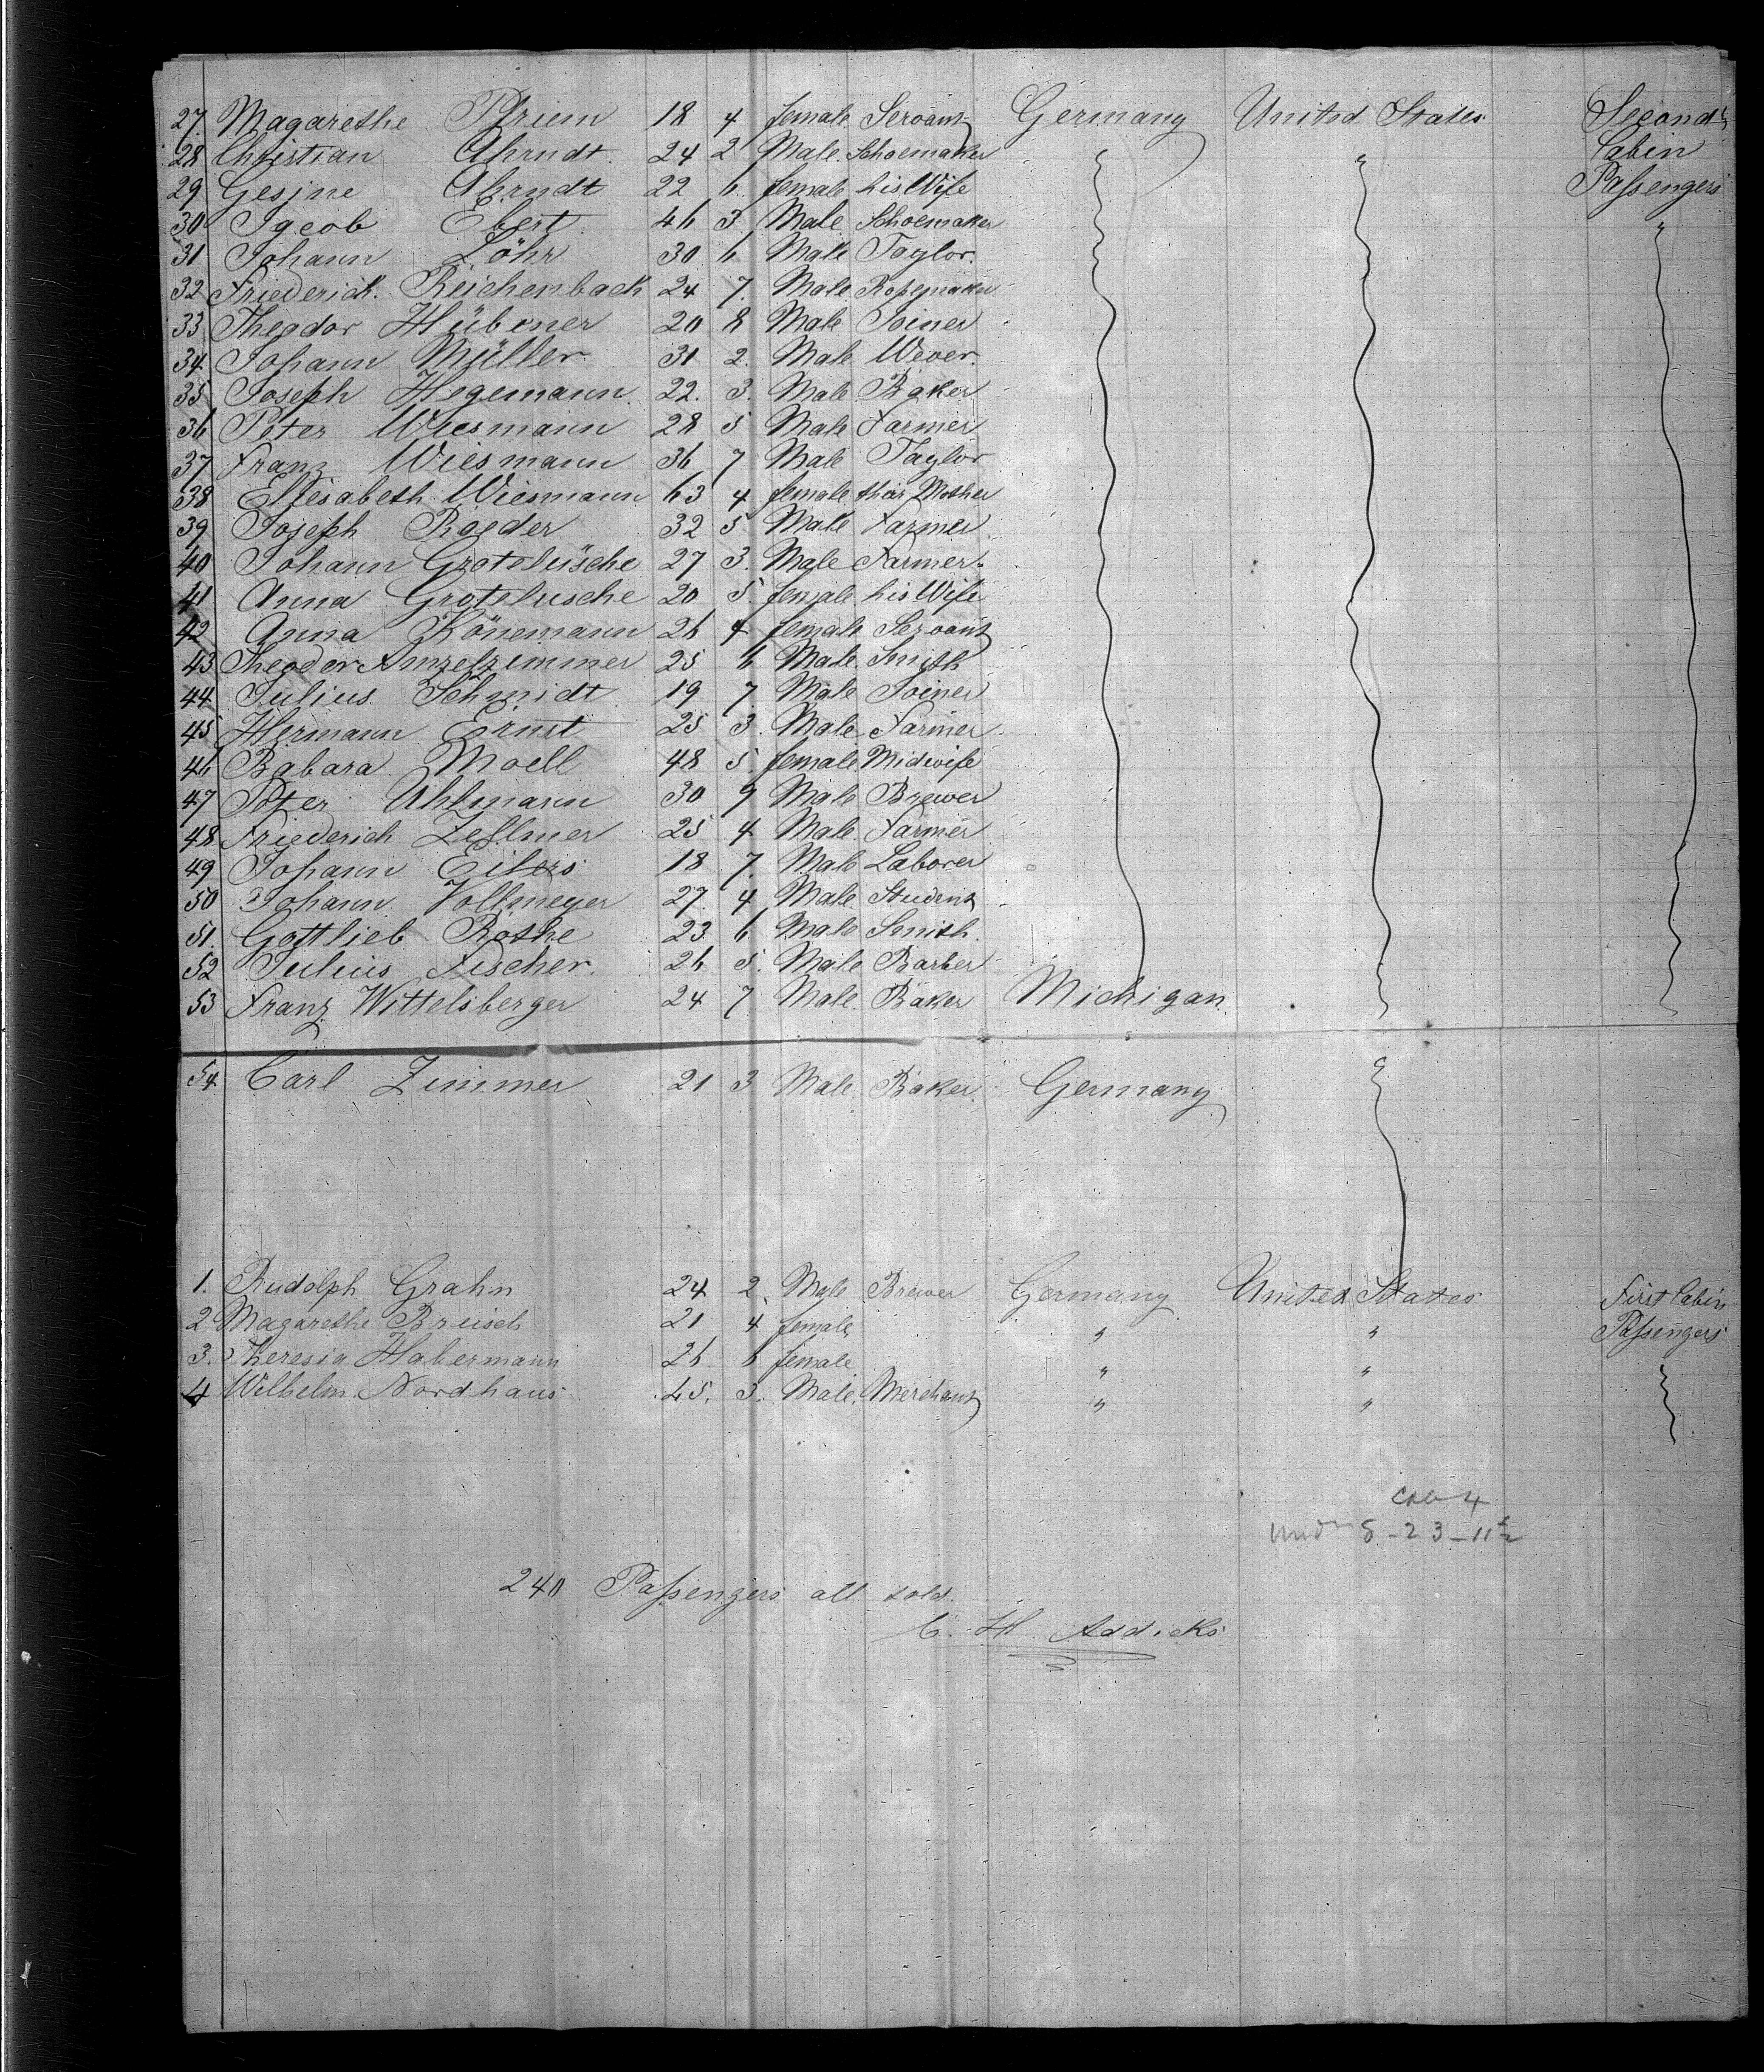 27 Magarethe Pfriem 18 4 female Servant Germany United States Second
28 Christian Ahrndt 24 2 Male Schoemaker " " Cabin
29 Gesine Ahrndt 22 6 female his Wife Passengers
30 Jacob Ebert 46 3 Male Schoemaker "
31 Johann Löhr 30 6 Male Taylor
32 Friederich Reichenbach 24 7 Male Ropemaker
33 Theodor Hübener 20 8 Male Joiner
34 Johann Müller 31 2 Male Wever
35 Joseph Hegemann 22 3 Male Baker
36 Peter Wiesmann 28 5 Male Farmer
37 Franz Wiesmann 36 7 Male Taylor
38 Elisabeth Wiesmann 63 4 female their Mother
39 Joseph Roeder 32 5 Male Farmer
40 Johann Grotelüsche 27 3 Male Farmer
41 Anna Grotelusche 20 5 female his Wife
42 Anna Könemann 26 4 female Servant
43 Theodor Amzelzimmer 25 6 Male Smith
44 Julius Schmidt 19 7 Male Joiner
45 Hermann Ernst 25 3 Male Farmer
46 Babara Moell 48 5 female Midwife
47 Peter Uhlmann 30 9 Male Brewer
48 Friederich Zellmer 25 4 Male Farmer
49 Johann Eilers 18 7 Male Laborer
50 Johann Vollmeyer 27 4 Male Student
51 Gottlieb Röthe 23 6 Male Smith
52 Julius Fischer 26 5 Male Barber
53 Franz Wittelsberger 24 7 Male Baker Michigan
54 Carl Zimmer 21 3 Male Baker Germany "
1. Rudolph Grahn 24 2 Male Brewer Germany United States First Cabin
2 Magarethe Breisch 21 4 female " " Passengers
3. Theresia Habermann 26 6 female " " "
4 Wilhelm Nordhaus 45 3 Male Merchant " "
Cab 4
Und 8 - 23 - 11½
240 Passengers all told.
C. H. Addicks